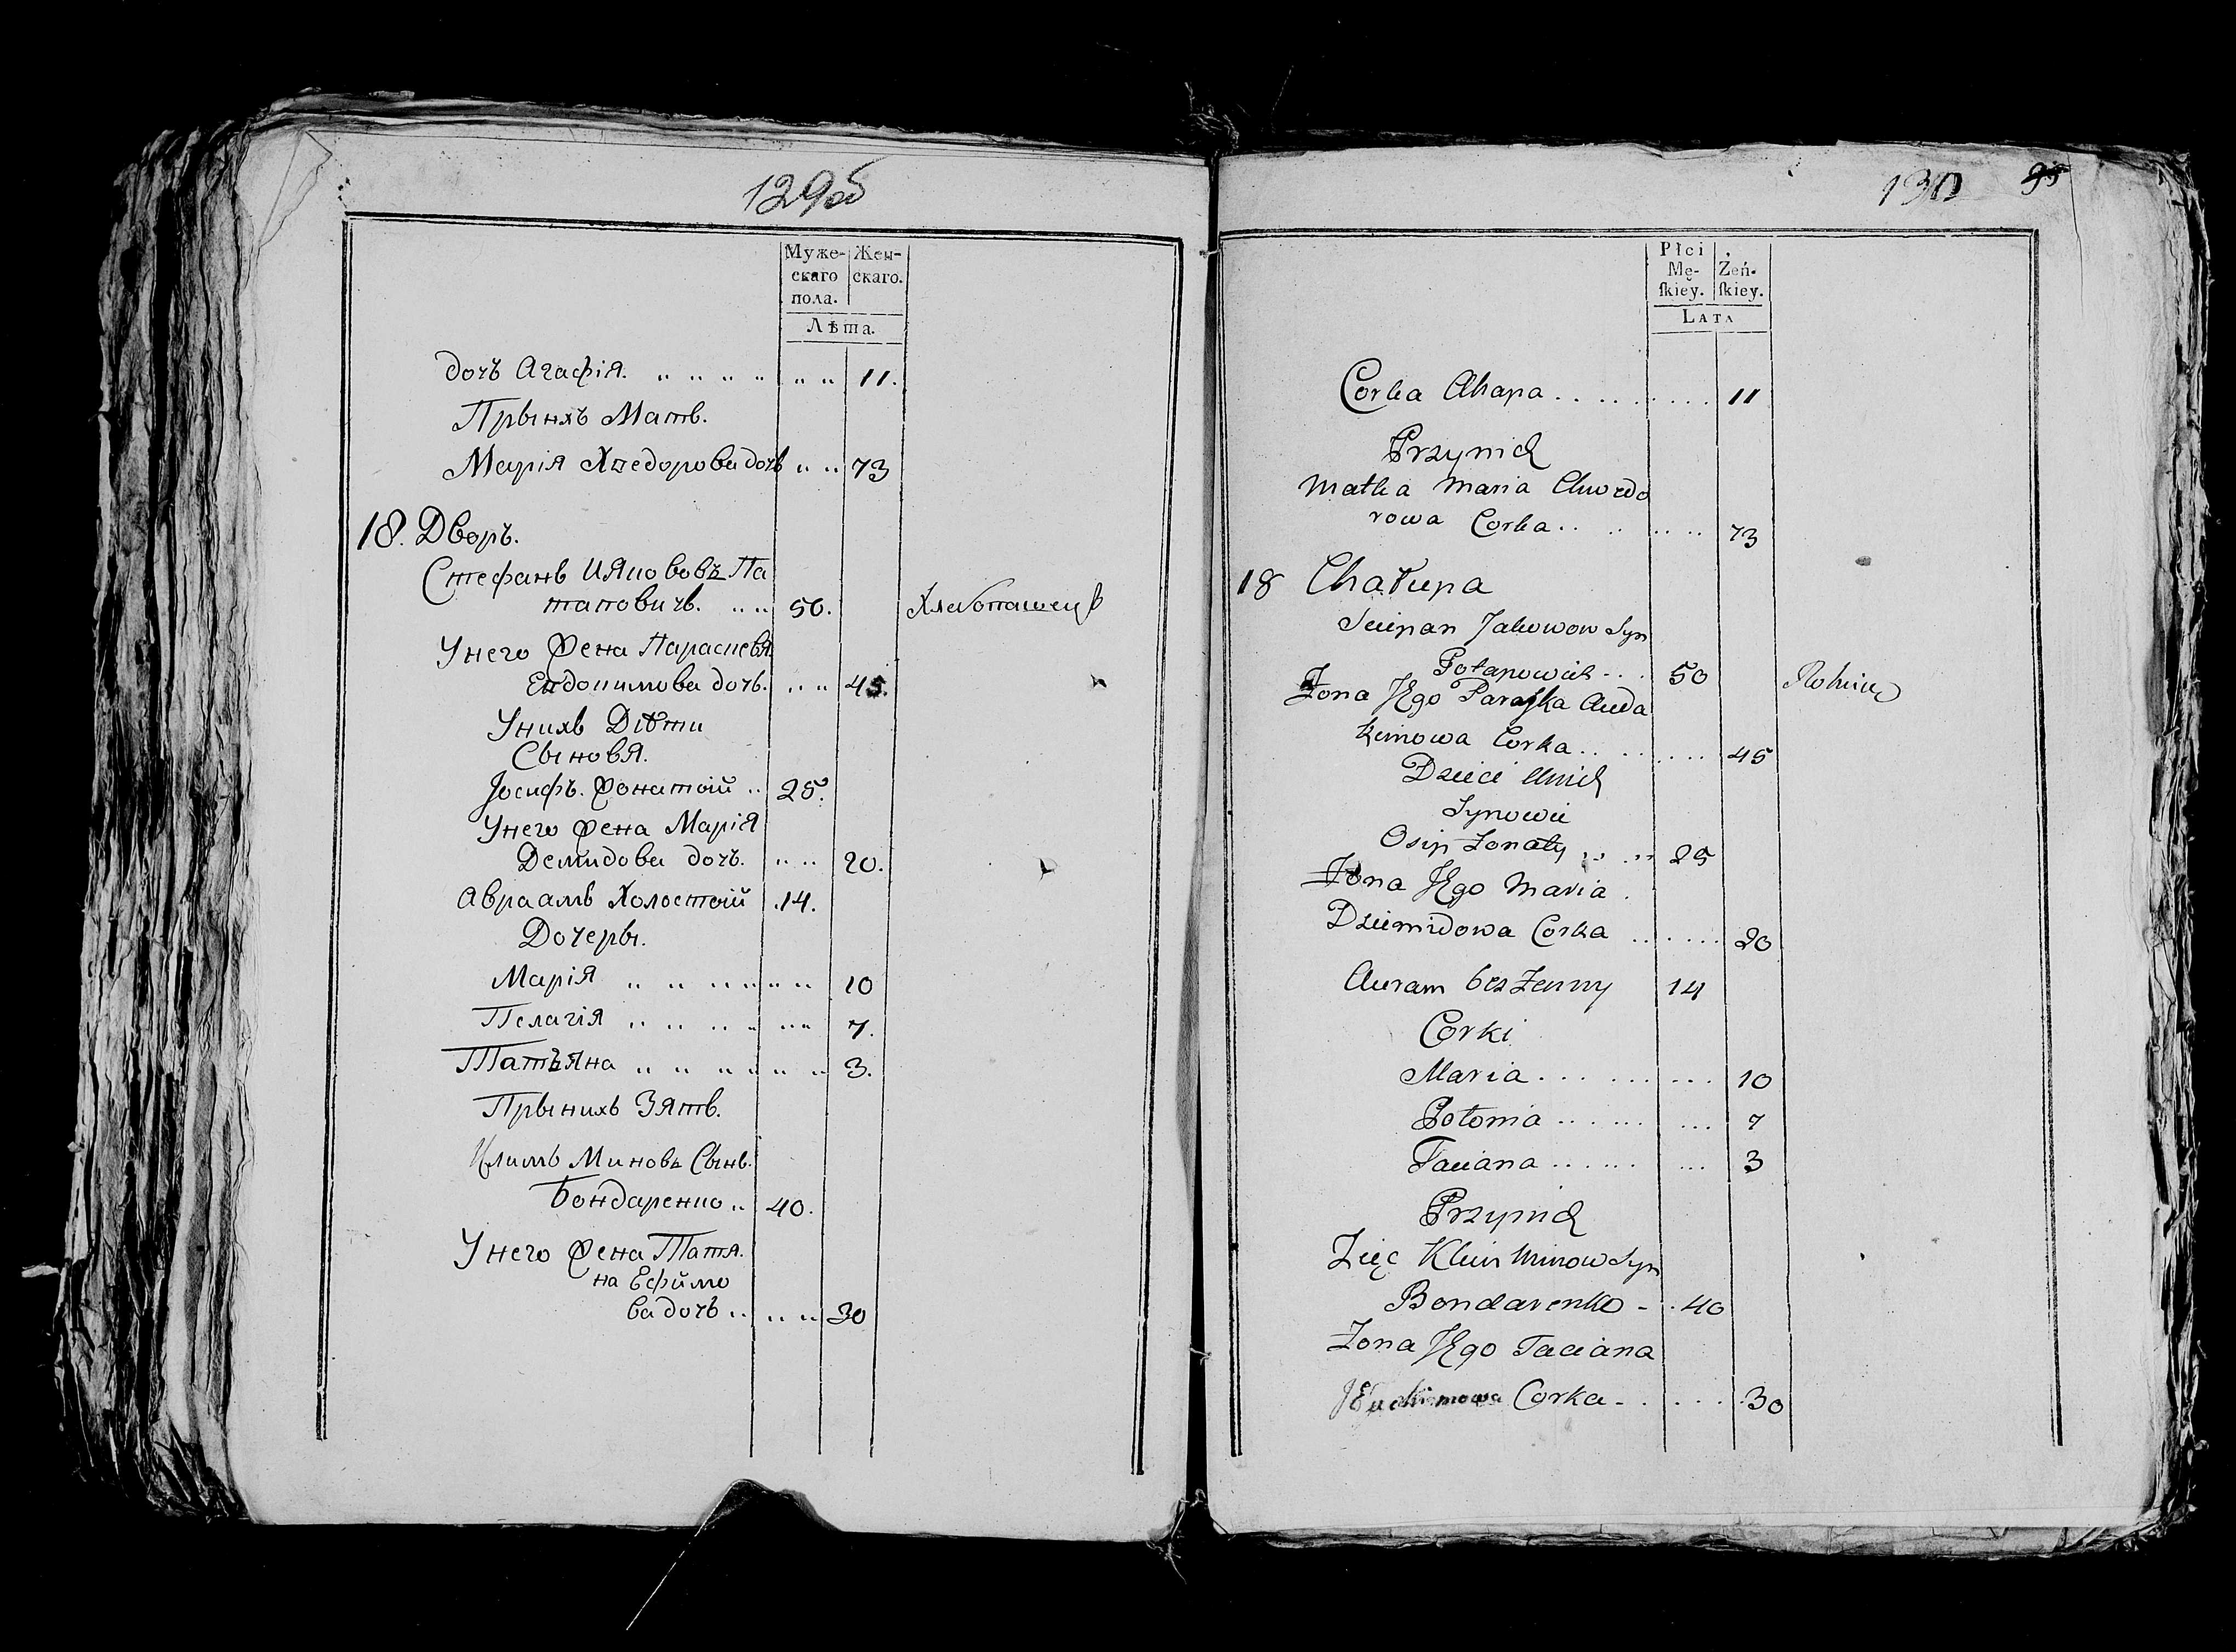 129об
Муже- Жен-
скаго скаго.
пола.
Лѣта.
дочь Агафія. 11.
Прыняхъ Мать.
Марія Хведорова дочь 73
18. Дворъ.
Стефанъ Иякововъ По
таповичъ. 50. Хлебопашецъ
Унего жена Параскевя
Евдокимова дочь. 45.
Унихъ Дѣти
Сыновя.
Іосифъ. жонатый 25.
Унего жена Марія
Демидова дочь. 20.
Авраамъ Холостый 14.
Дочеры.
Марія 10
Пелагія 7.
Татъяна 3.
Прынихъ Зять.
Климъ Миновъ Сынъ.
Бондаренко 40.
Унего жена Татя.
на Ефимо
ва дочь 30
130 95
Płci
Mę- Żeń-
ſkiey. ſkiey.
LATA
Corka Ahapa 11
Przynich
Matka Maria Chwedo
rowa Corka 73
18 Chałupa
Sciepan Jakowow Syn
Potapowicz 50 Rolnik
Żona Jego Paraſka Auda
kimowa Corka 45
Dzieci Unich
Synowie
Osip Żonaty 25
Żona Jego Maria
Dziemidowa Corka 20
Auram bezżenny 14
Corki
Maria 10
Połonia 7
Taciana 3
Przynich
Zięc Klim Minow Syn
Bondarenko 40
Żona Jego Taciana
Jeuchimowa Corka 30